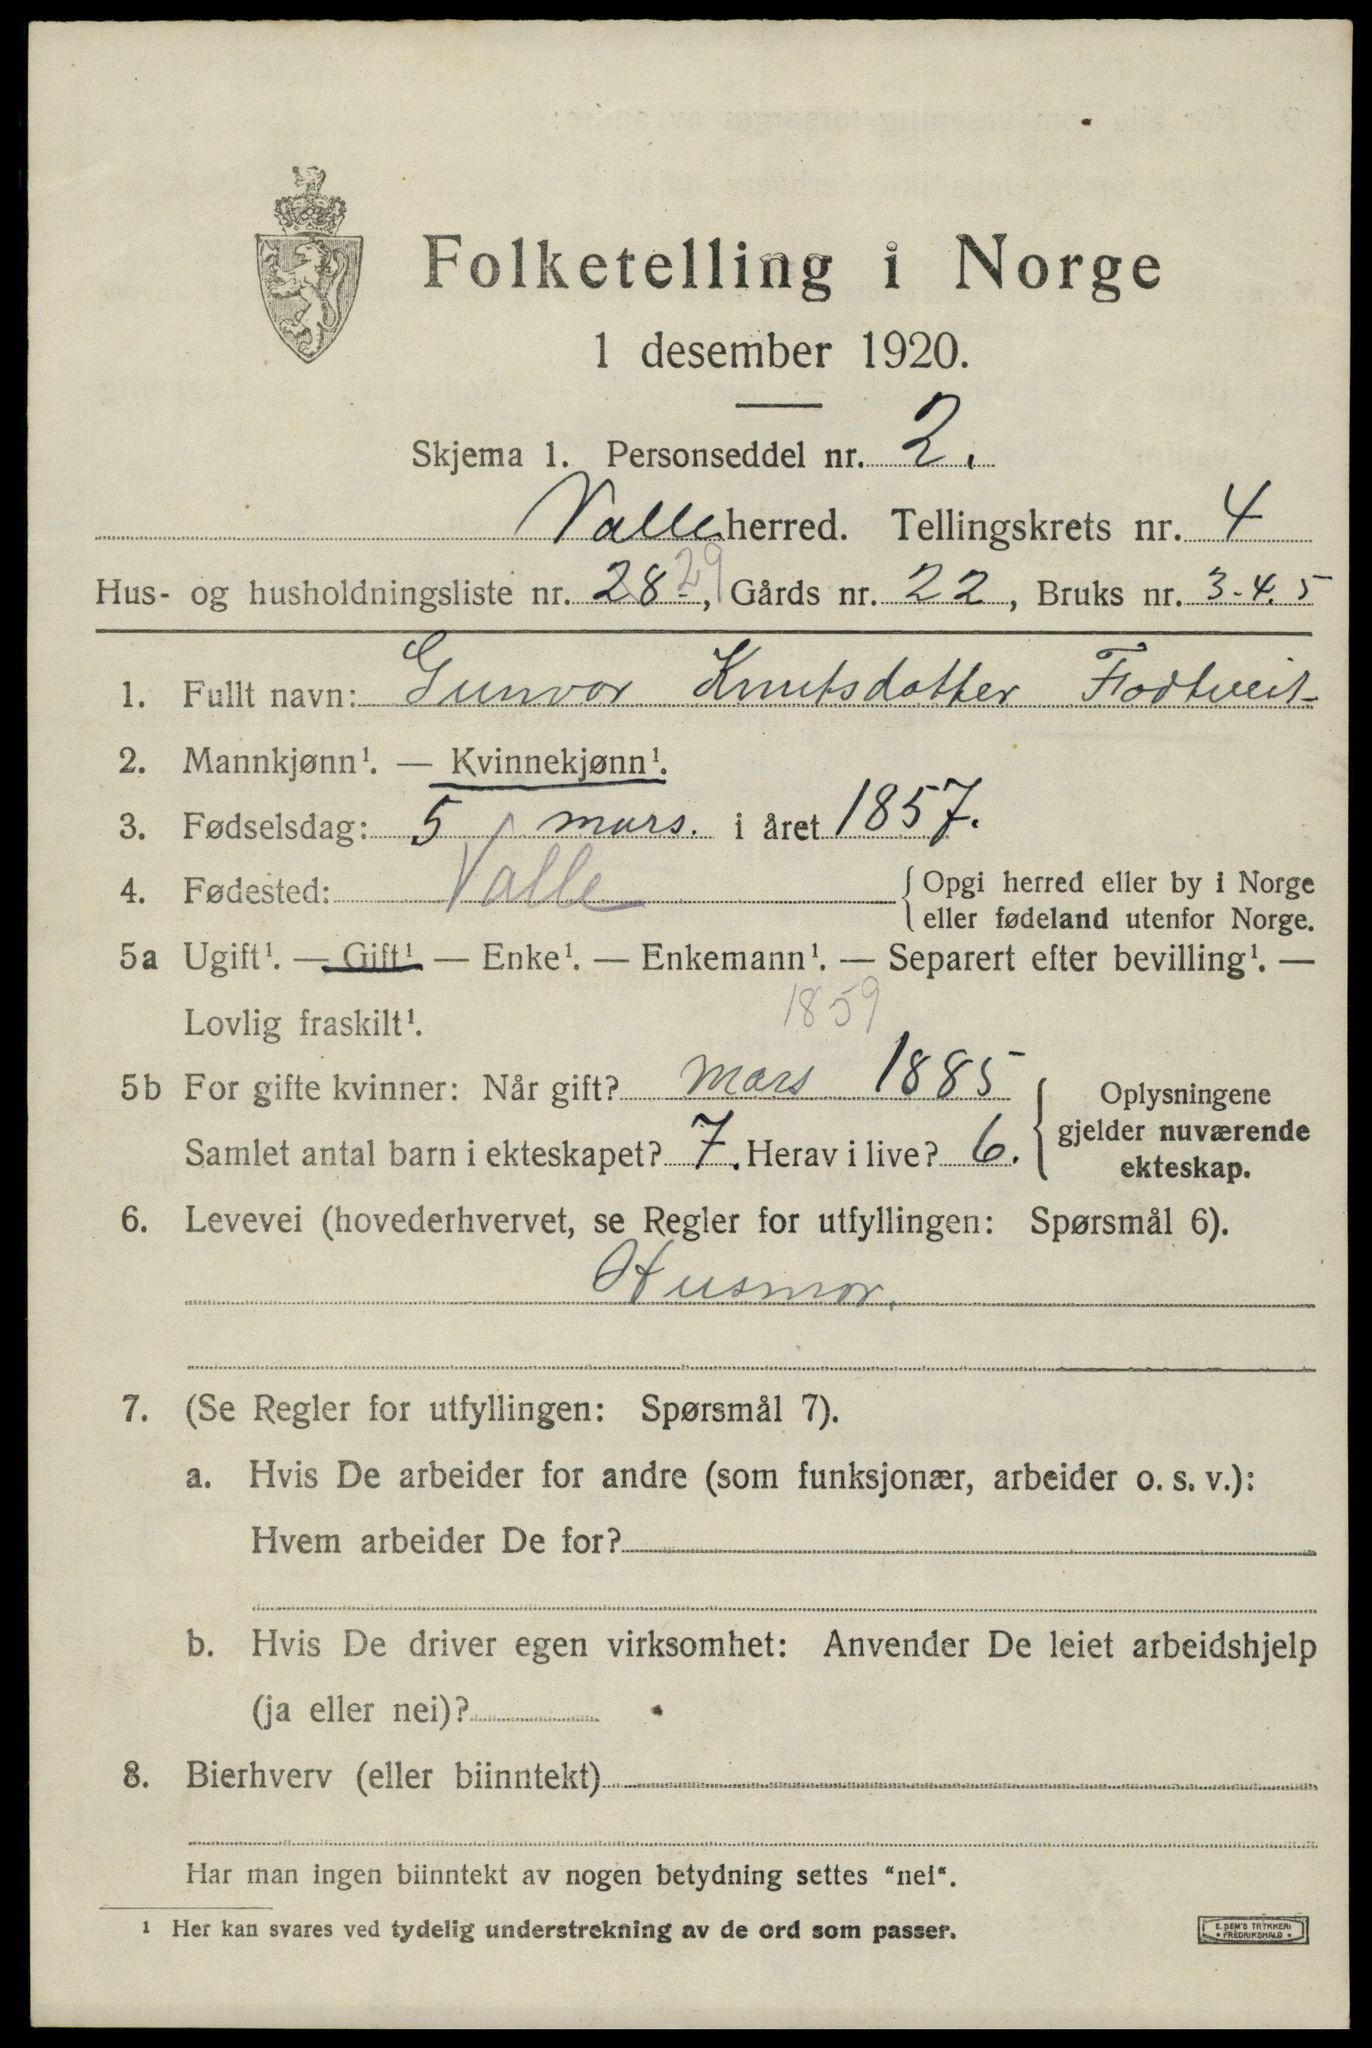 Folketelling i Norge
1 desember 1920.
Skjema 1. Personseddel nr. 2.
Valle herred. Tellingskrets nr. 4
Hus- og husholdningsliste nr. 28 29, Gårds nr. 22, Bruks nr. 3-4.5
1. Fullt navn: Gunvor Knutsdotter Flodtveit
2. Mannkjønn¹. — Kvinnekjønn¹.
3. Fødselsdag: 5 mars. i året 1857.
4. Fødested: Valle { Opgi herred eller by i Norge
eller fødeland utenfor Norge.
5a Ugift¹. — Gift¹ — Enke¹. — Enkemann¹. — Separert efter bevilling¹. —
Lovlig fraskilt¹.
1859
5b For gifte kvinner: Når gift? mars 1885
Samlet antal barn i ekteskapet? 7. Herav i live? 6.
Oplysningene
gjelder nuværende
ekteskap.
6. Levevei (hovederhvervet, se Regler for utfyllingen: Spørsmål 6).
Husmor.
7. (Se Regler for utfyllingen: Spørsmål 7).
a. Hvis De arbeider for andre (som funksjonær, arbeider o. s. v.):
Hvem arbeider De for?
b. Hvis De driver egen virksomhet: Anvender De leiet arbeidshjelp
(ja eller nei)?
8. Bierhverv (eller biinntekt)
Har man ingen biinntekt av nogen betydning settes "nei".
¹ Her kan svares ved tydelig understrekning av de ord som passer.
E. SEM'S TRYKKERI
• FREDRIKSHALD •